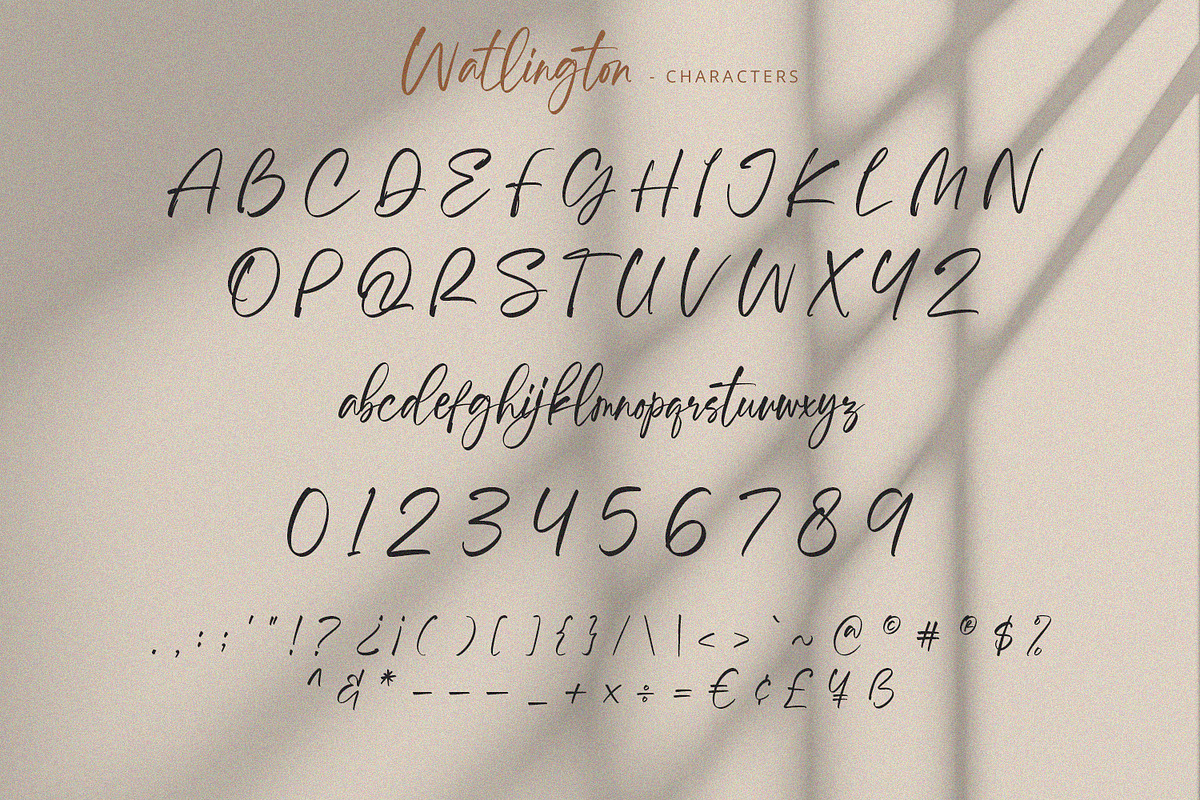 Watlington - CHARACTERS
A B C D E F G H I J K L M N
O P Q R S T U V W X Y Z
abcdefghijklmnopqrstuvwxyz
0 1 2 3 4 5 6 7 8 9
. , : ; ' " ! ? ¿ ¡ ( ) [ ] { } / \ | < > ` ~ @ © # ® $ %
^ & * – — - _ + × ÷ = € ¢ £ ¥ ß